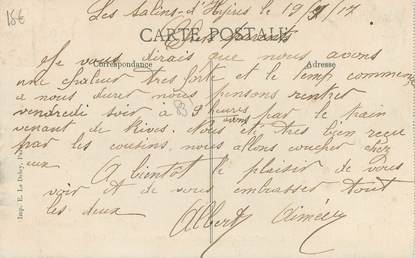 15€
Les Salins-d'Hyères le 19/7/17
CARTE POSTALE
Chers parents
Correspondance
Adresse
Je vous dirais que nous avons
une chaleur très forte et le temp commence
a nous durer nous pensons rentrer
vendredi soir à 9 heures par le train
venant de Rives. Nous été très bien reçu
par les cousins, nous allons coucher chez
eux A bientôt le plaisir de vous
voir et de vous embrasser tout
les deux Albert Aimée
Imp. E. Le Deley, Paris